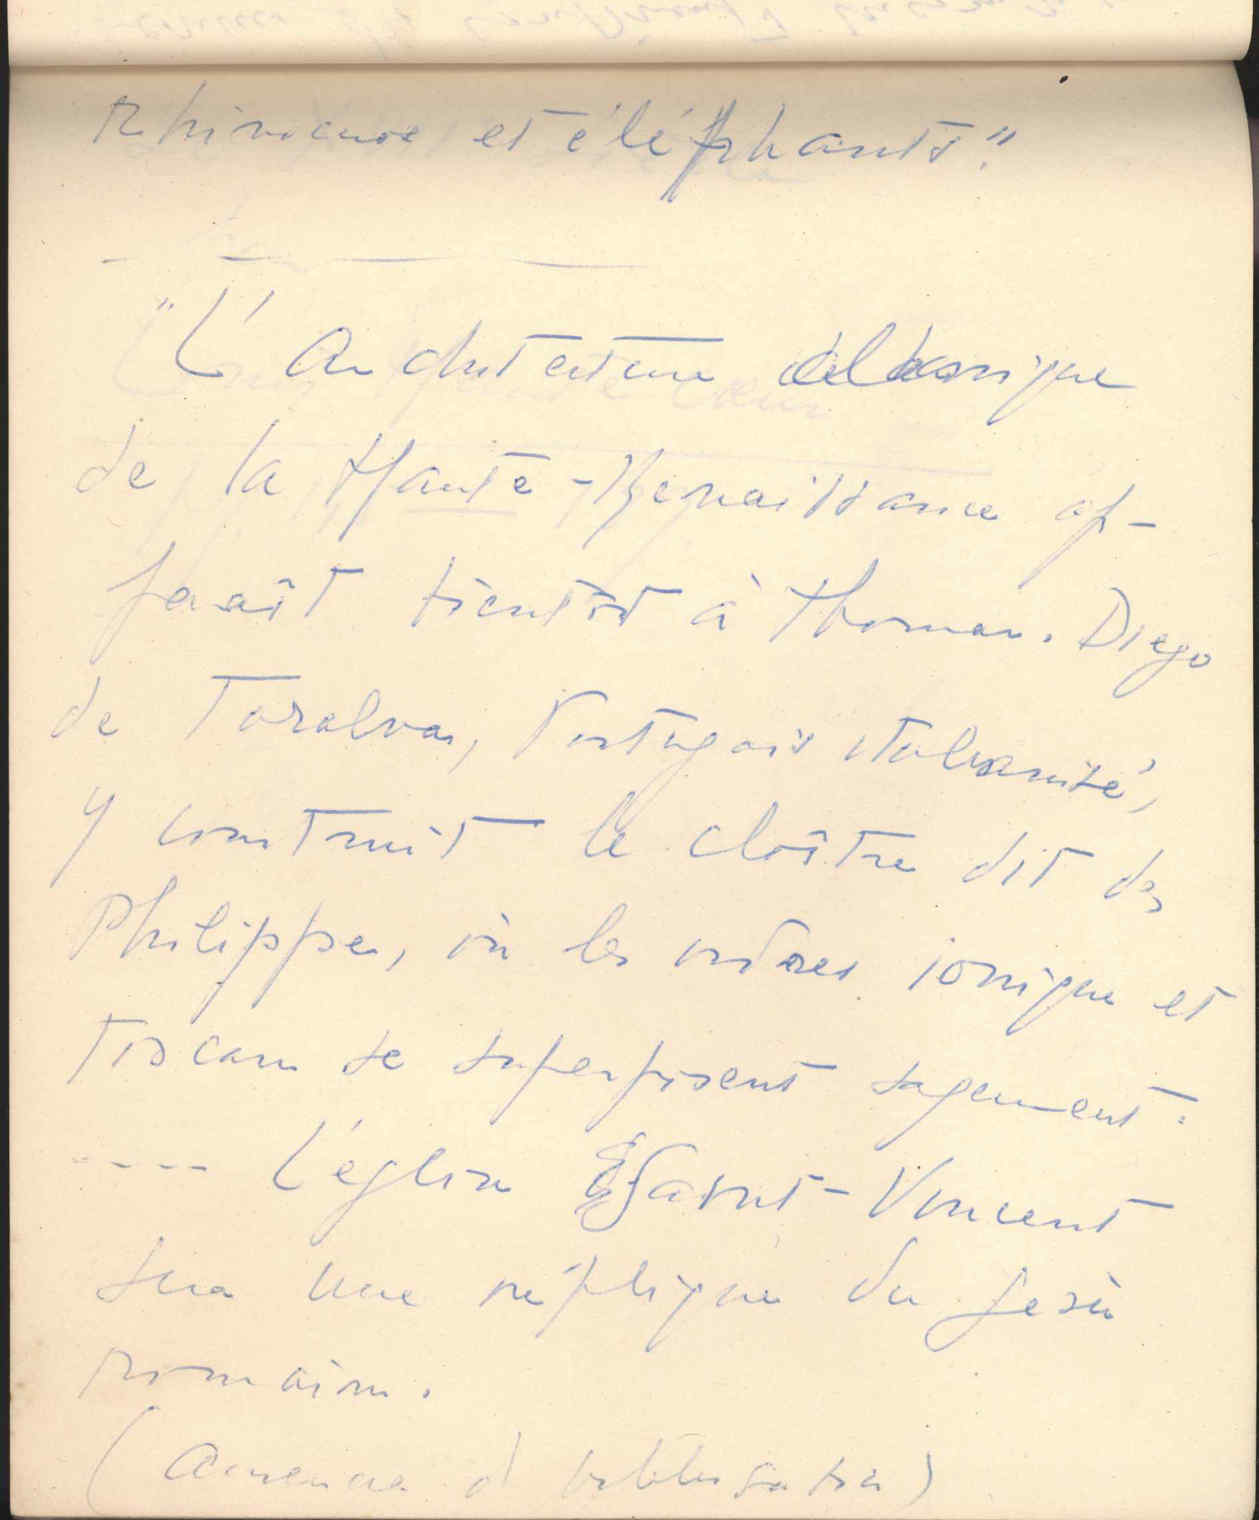 Rhinoceros et éléphants".
"L'Architecture classique
de la Haute-Renaissance ap-
paraît bientôt à Thomar. Diego
de Toralva, Portugais italianisé,
y construit le cloître dit des
Philippes, où les ordres ionique et
toscan se superposent sagement.
---- L'église Saint-Vincent
sera une réplique du Gesù
romain.
(Absence d'